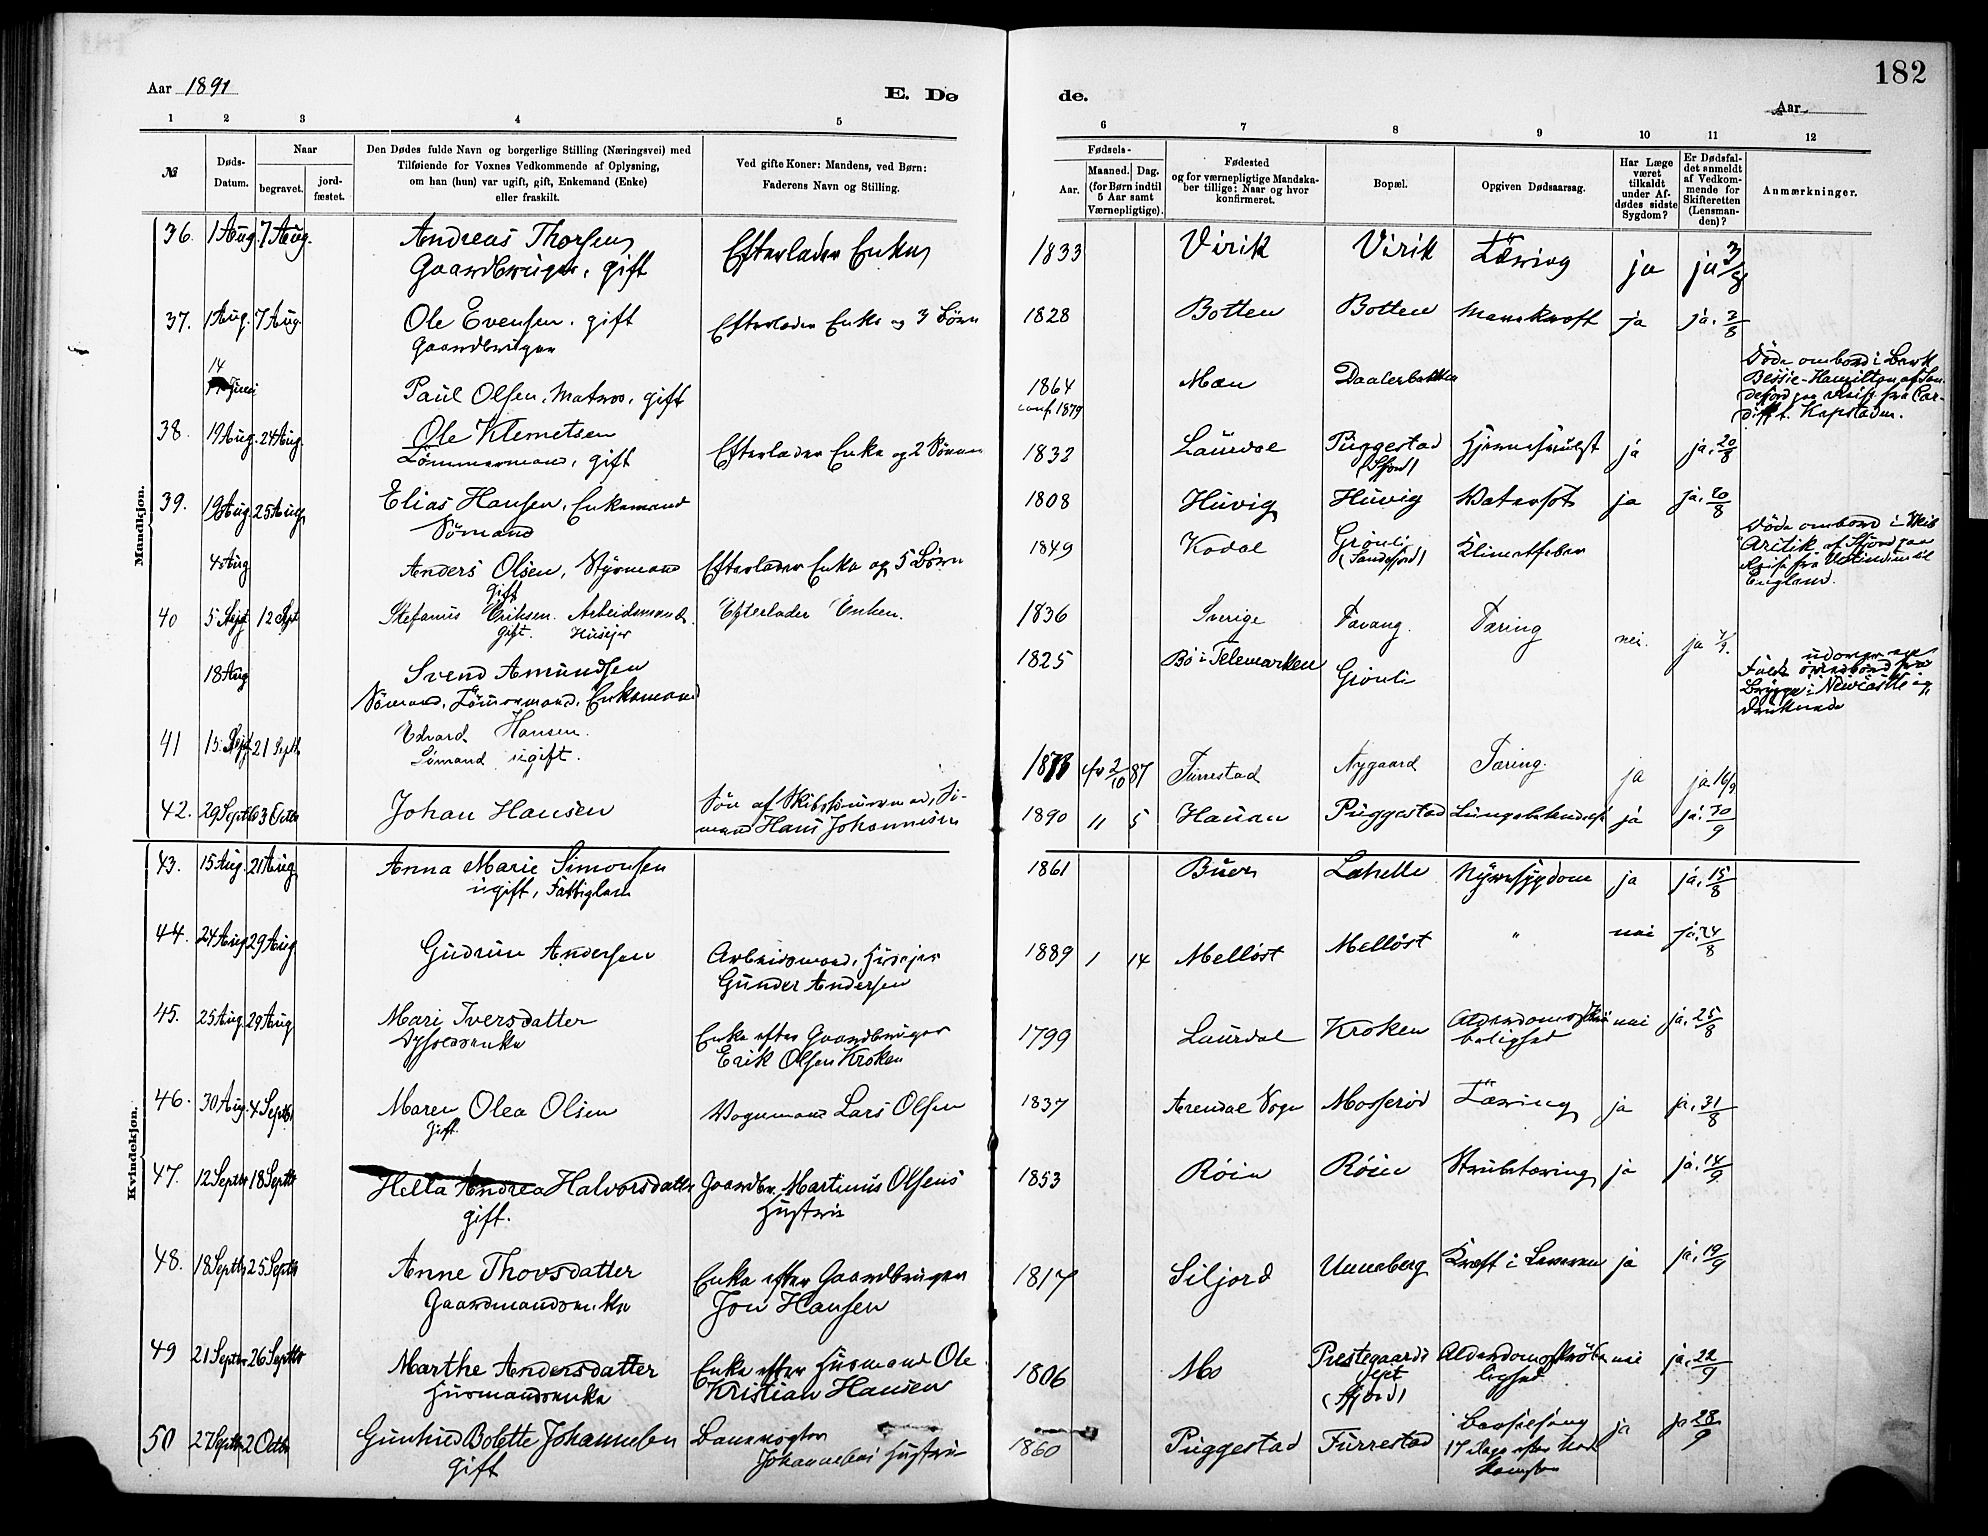 182
Aar 1891
E. Dø
de.
Aar
1 2 3 4 5 6 7 8 9 10 11 12
№
Døds-
Datum.
Naar
begravet.
jord-
fæstet.
Den Dødes fulde Navn og borgerlige Stilling (Næringsvei) med
Tilføiende for Voxnes Vedkommende af Oplysning,
om han (hun) var ugift, gift, Enkemand (Enke)
eller fraskilt.
Ved gifte Koner: Mandens, ved Børn:
Faderens Navn og Stilling.
Fødsels-
Aar.
Maaned. Dag.
(for Børn indtil
5 Aar samt
Værnepligtige).
Fødested
og for værnepligtige Mandska-
ber tillige: Naar og hvor
konfirmeret.
Bopæl.
Opgiven Dødsaarsag.
Har Læge
været
tilkaldt
under Af-
dødes sidste
Sygdom?
Er Dødsfal-
det anmeldt
af Vedkom-
mende for
Skifteretten
(Lensman-
den)?
Anmærkninger.
Mandkjøn.
36. 1 Aug. 7 Aug. Andreas Thorsen Efterlader Enke 1833 Virik Virik Tæring ja ja 3/8
Gaardbruger, gift
37. 1 Aug. 7 Aug. Ole Evensen. gift Efterlader Enke og 3 Børn 1828 Botten Botten Mavekræft ja ja. 3/8
Gaardbruger
14 Juni Paul Olsen, Matros, gift 1864 Mæn Daalerbakken
conf. 1879
Døde ombord i Bark
Bessie-Hamilton af San-
defjord paa Reise fra Car-
diff t. Kapstaden.
38. 19 Aug. 24 Aug. Ole Klemetsen Efterlader Enke og 2 Sønner 1832 Laurdal Puggestad ja ja. 20/8
Tømmermand, gift (Sfjord)
39. 19 Aug. 25 Aug. Elias Hansen, Enkemand 1808 Huvig Huvig Vatersot ja ja. 20/8
Sømand
4 Aug Anders Olsen, Styrmand Efterlader Enke og 5 Børn 1849 Kodal Grønli Klimatfeber
gift (Sandefjord)
Døde ombord i
Arctik af Sfjord paa
Reise fra Vestindien til
England.
40 5 Sept 12 Sept Stefanus Eriksen. Arbeidsmand. Efterlader Enken. 1836 Sverige Favang. Tæring nei. ja 7/9.
gift. Husejer
18 Aug Svend Amundsen 1825 Bø i Telemarken Grønli
Sømand, Tømmermand, Enkemand
Faldt overbord fra
Brygge i Newcastle og
druknede
41 15. Sept 21 Septb Edvard Hansen. 1873 cfr 2/10 87 Furrestad Nygaard Tæring. ja ja 16/9
Sømand ugift.
42. 29 Septb 3 Octbr Johan Hansen Søn af 1890 11 5 Hauan Puggestad Lungebetændelse ja ja. 30/9
Hans Johannesen
Kvindekjøn.
43. 15 Aug. 21 Aug. Anna Marie Simonsen 1861 Buer Lahelle Nyresygdom ja ja. 15/8
ugift, Fattiglem
44. 24 Aug 29 Aug. Gudrun Andersen Arbeidsmand, Husejer 1889 1 14 Melløst Melløst " nei ja. 24/8
Gunder Andersen
45. 25 Aug. 29 Aug Mari Iversdatter Enke efter Gaardbruger 1799 Laurdal Kroken nei ja. 25/8
Erik Olsen Kroken
46. 30 Aug. 4 Septbr Maren Olea Olsen Vognmand Lars Olsen 1837 Arendal Sogn Mosserød Tæring ja ja. 31/8
gift.
47. 12 Septbr 18 Septb Hella Andrea Halvorsdatter Gaardbr. Martinus Olsens 1853 Røin Røin Strubetæring ja ja. 14/9
gift. Hustru
48. 18 Septbr 25 Septbr Anne Thovsdatter Enke efter Gaardbruger 1817 Siljord Unneberg Kræft i Leveren ja ja. 19/9
Gaardmandsenke Jon Hansen
49 21 Septbr 26 Septbr Marthe Andersdatter Enke efter Husmand Ole 1806 Mo Prestegaards Alderdomsskrøbe- nei ja. 22/9
Husmandsenke Kristian Hansen lighed
50 27 Septbr 2 Octbr Gunhild Bolette Johannesen 1860 Puggestad Furrestad Barselsæng ja ja 28/9
gift Johannesens Hustru 17 Dage efter